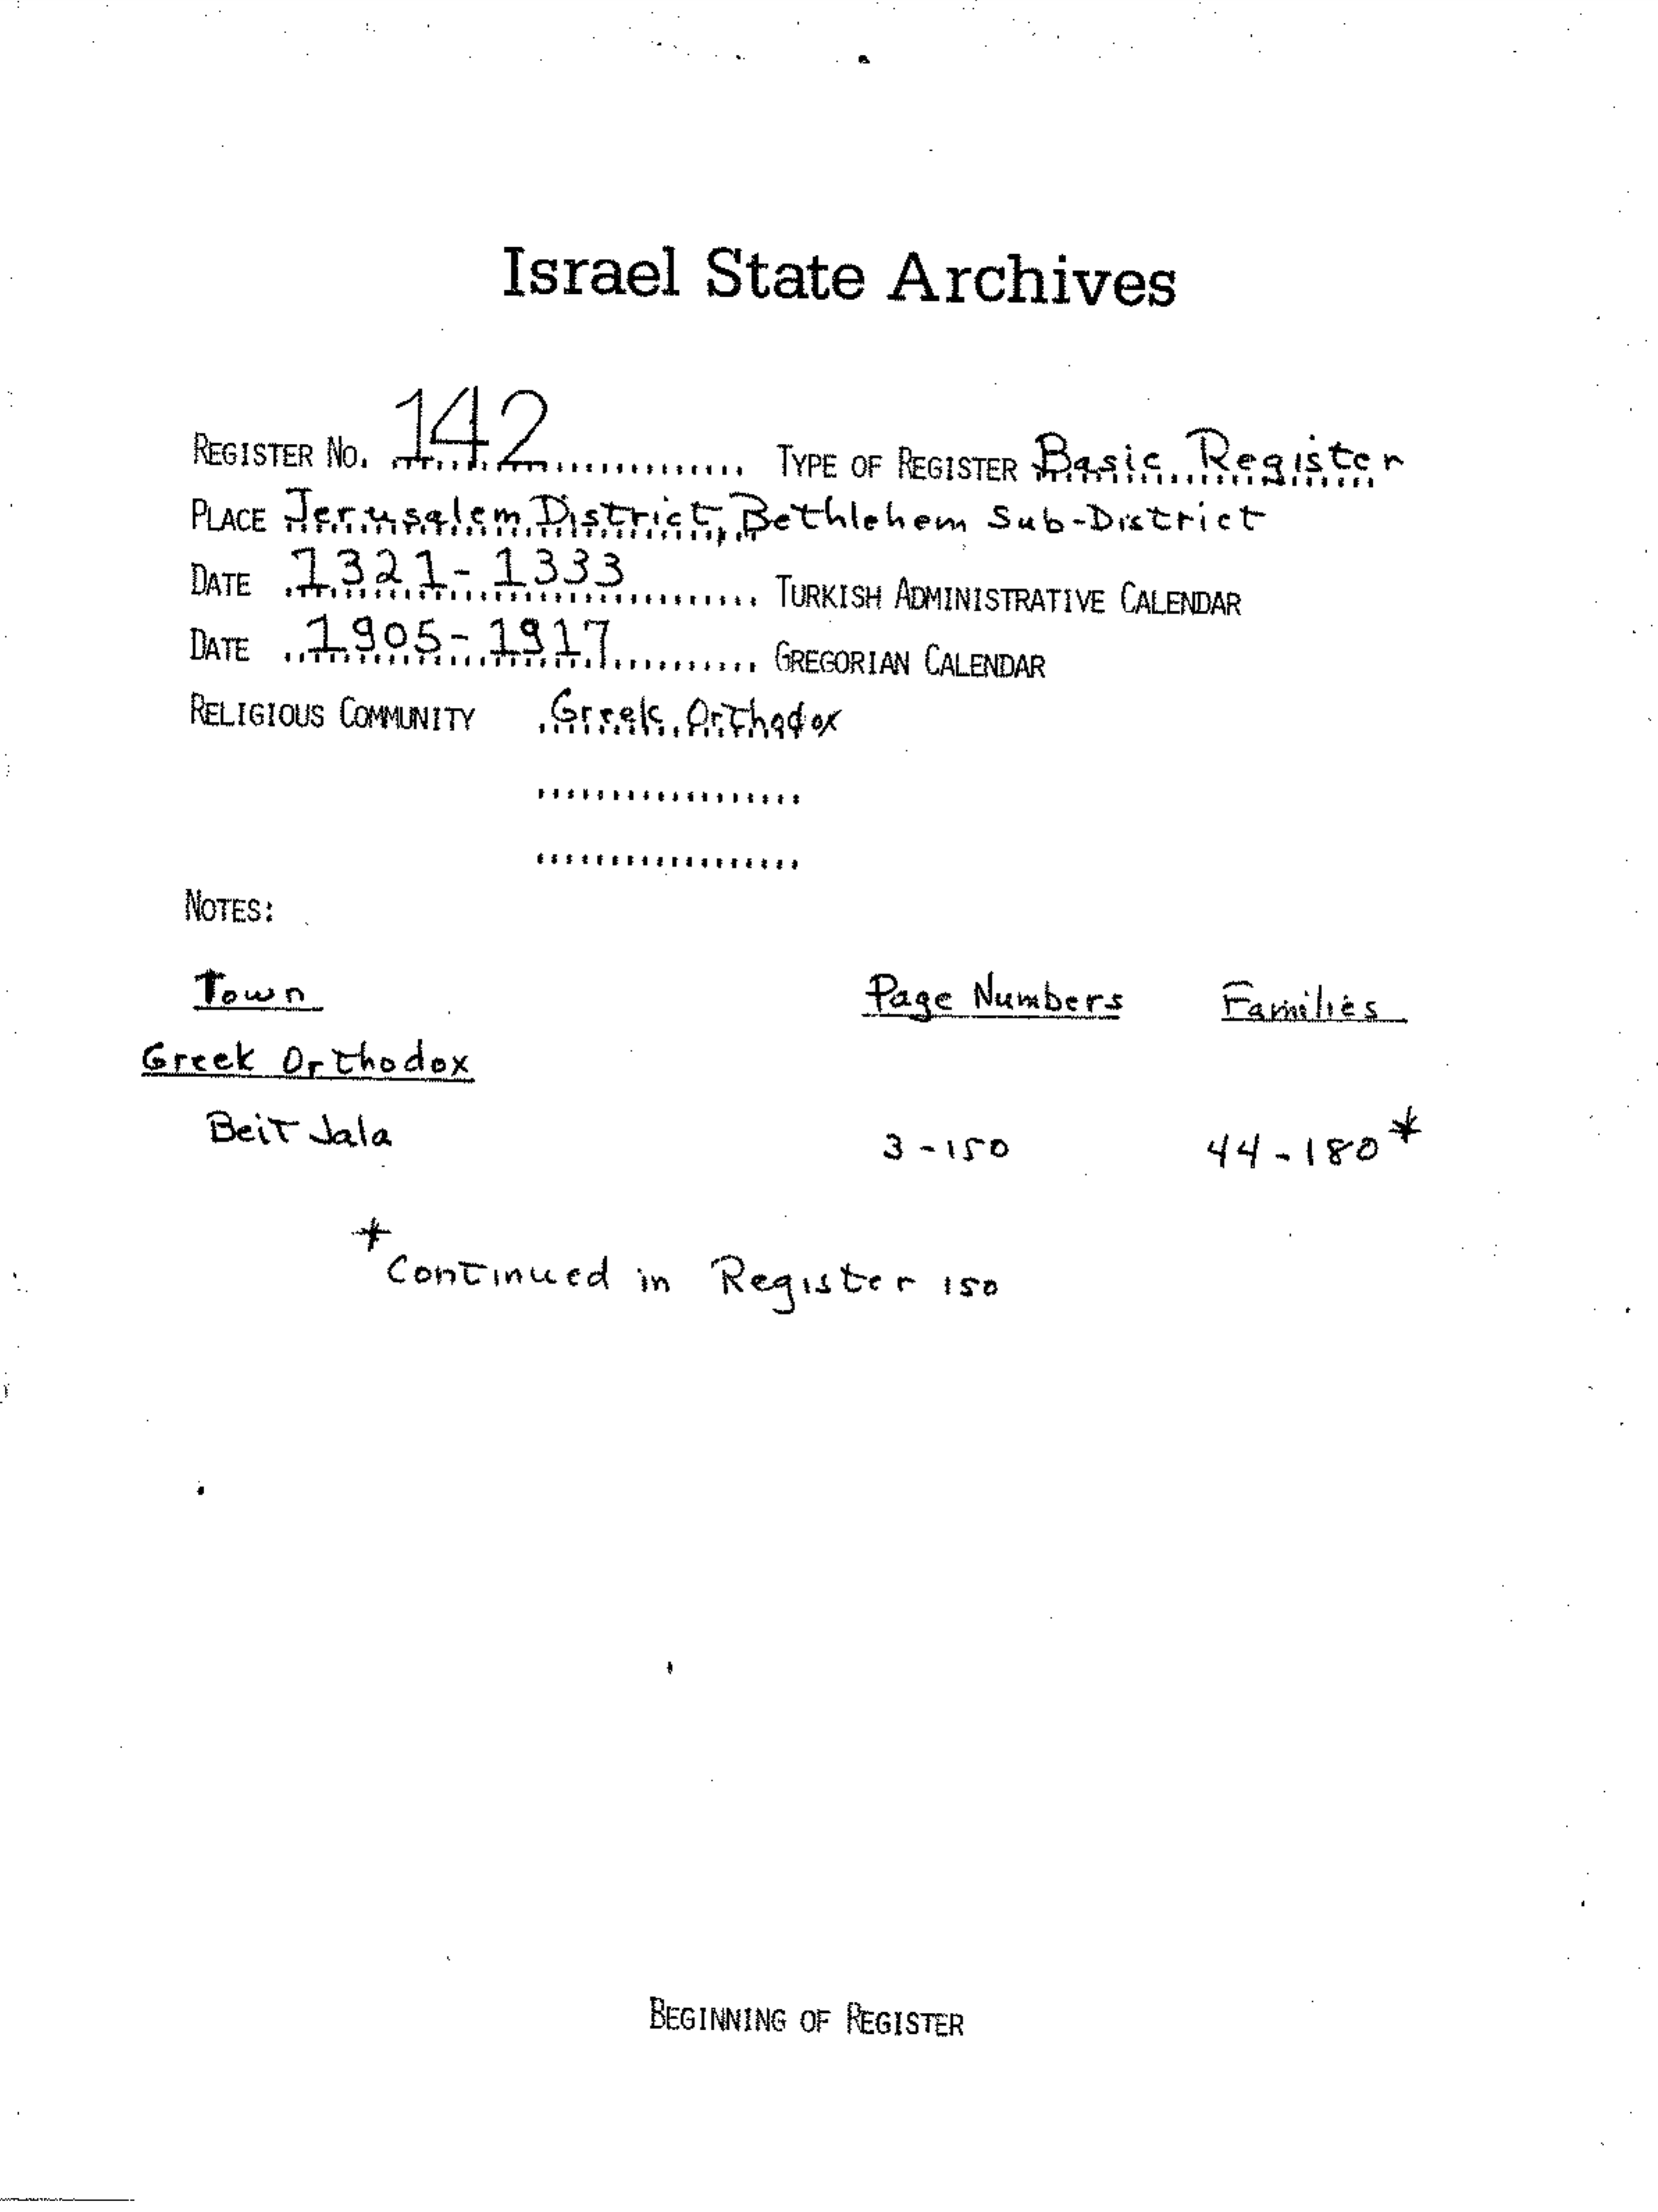 Israel State Archives
REGISTER NO. 142 TYPE OF REGISTER Basic Register
PLACE Jerusalem District, Bethlehem Sub-District
DATE 1321-1333 TURKISH ADMINISTRATIVE CALENDAR
DATE 1905-1917 GREGORIAN CALENDAR
RELIGIOUS COMMUNITY Greek Orthodox
NOTES:
Town Page Numbers Families
Greek Orthodox
Beit Jala 3-150 44-180*
* Continued in Register 150
BEGINNING OF REGISTER